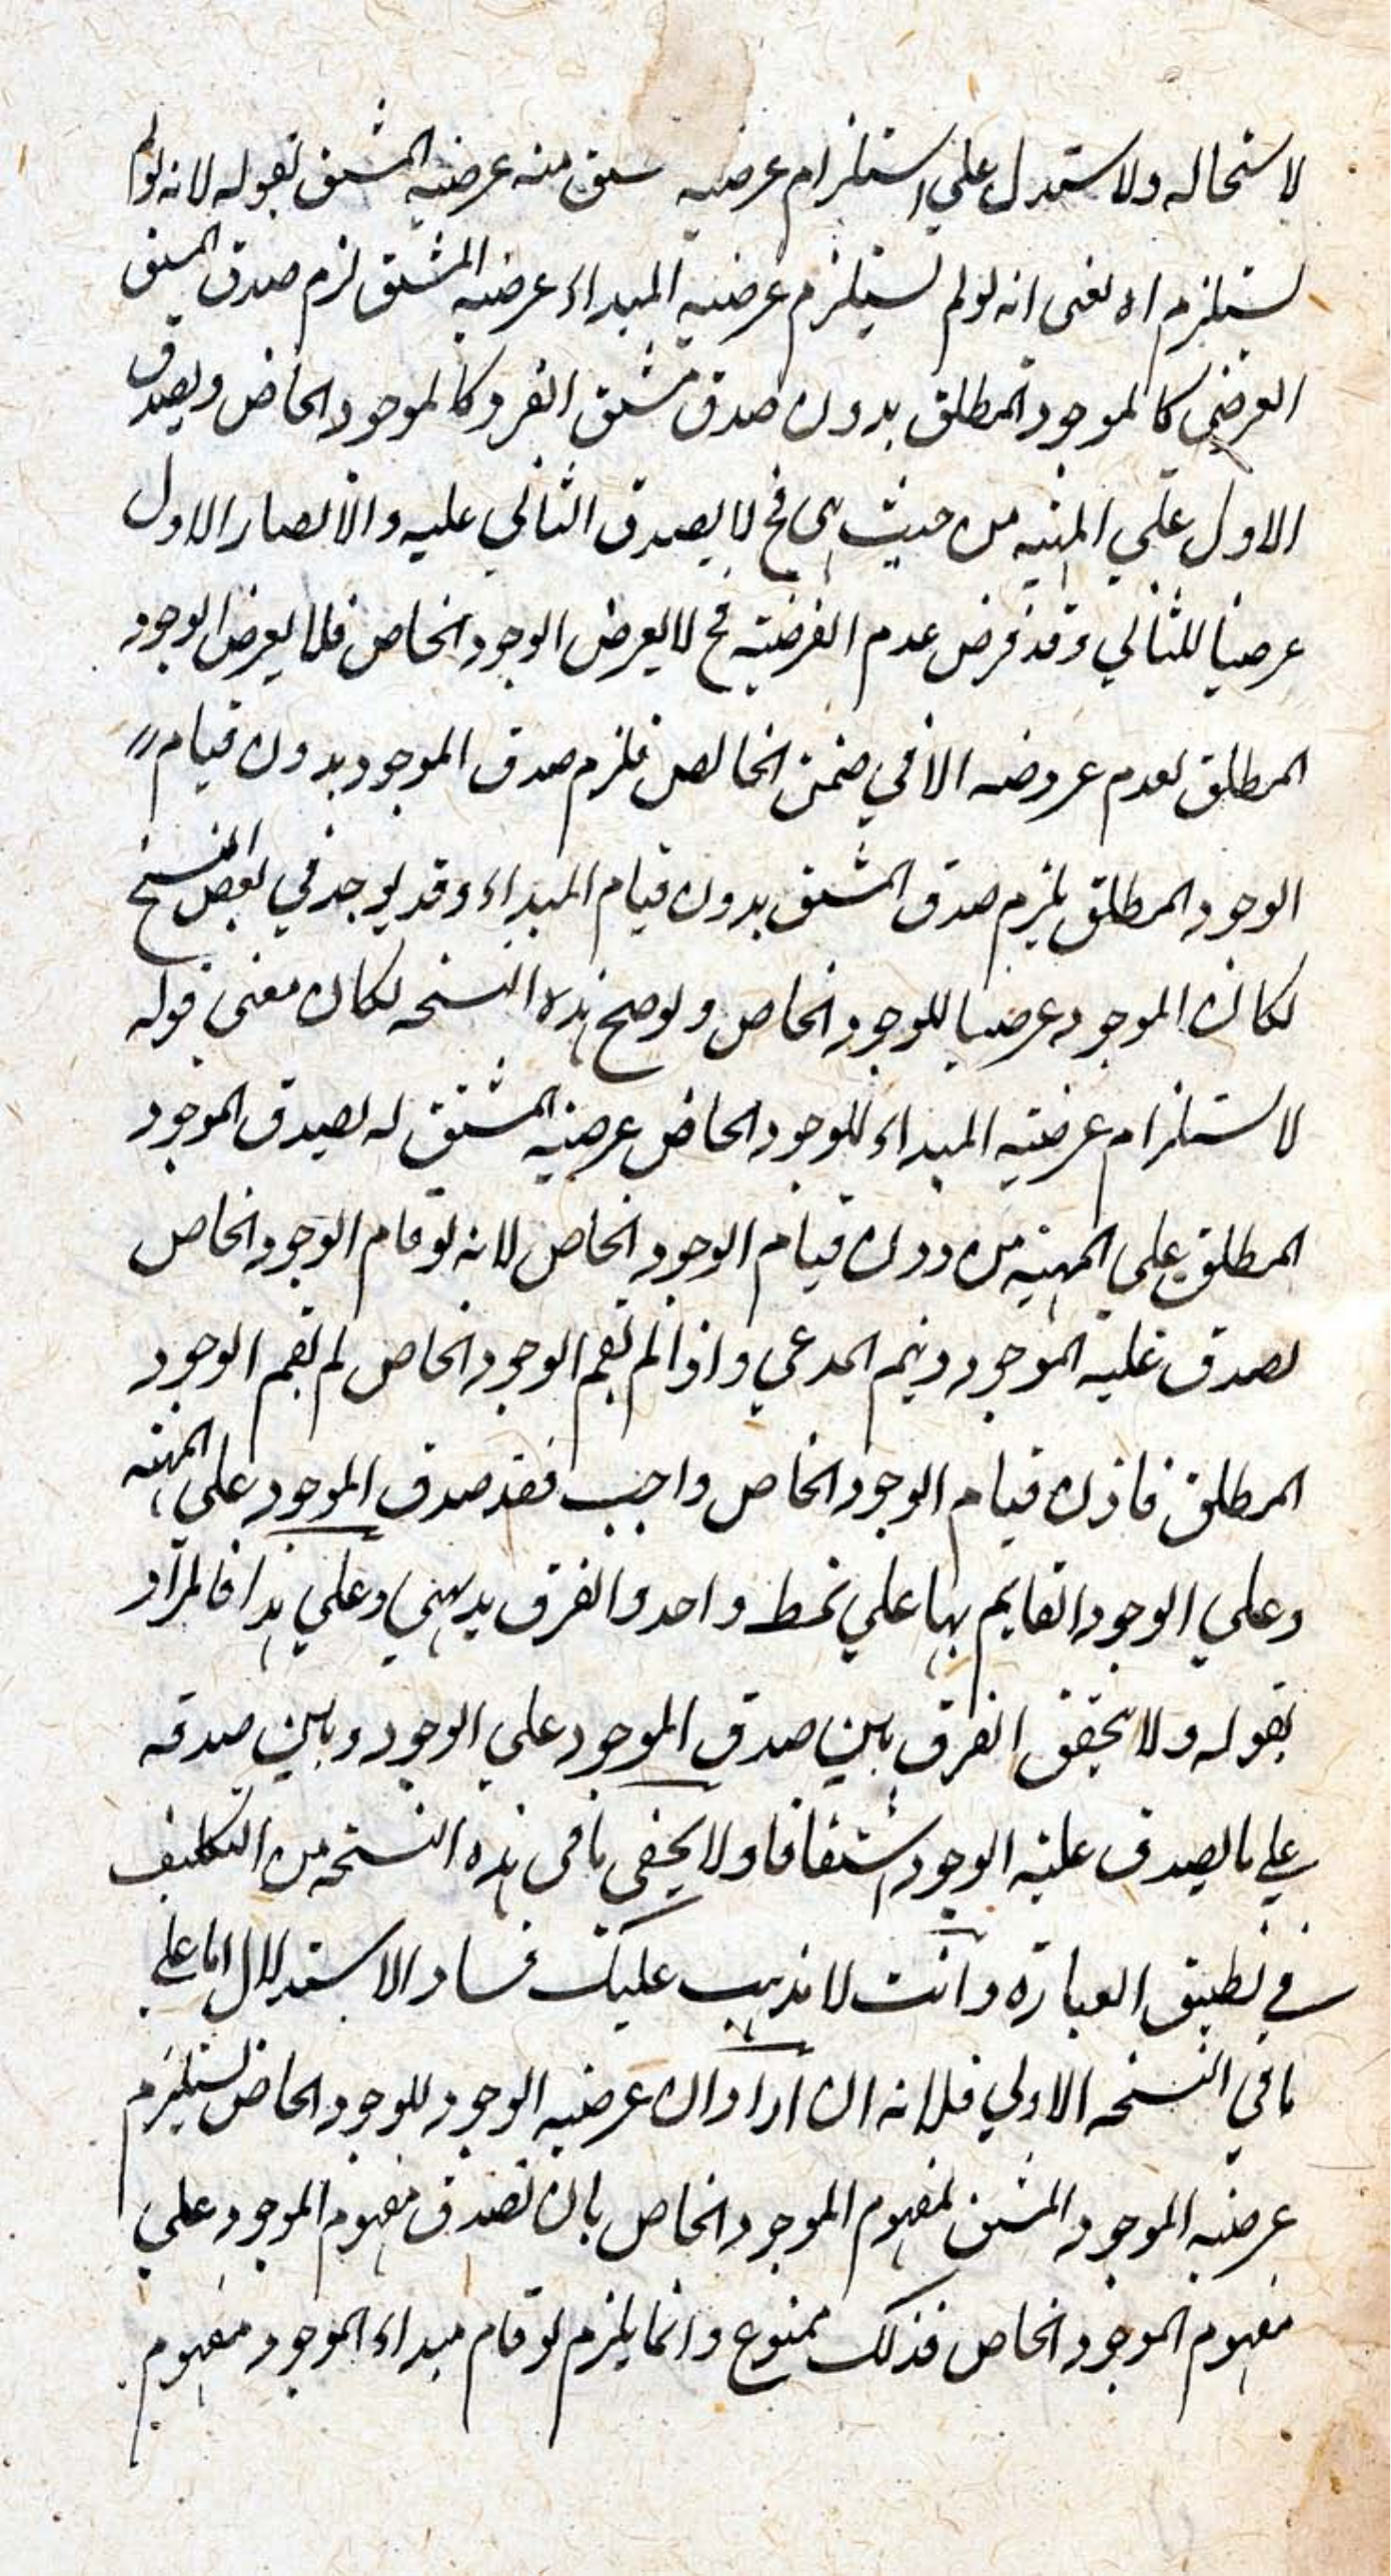 لاستحاله ولاستدل علي استلزام عرضيه ستق منه عرضيه المشتق بقوله لانه لو لم
يستلزم اه يعني انه لو لم يستلزم عرضيه المبداء عرضيه المشتق لزم صدق المشتق
العرضي كالموجود المطلق بدون صدق مشتق الفرد كالموجود الخاص ويصدق
الاول علي المهيه من حيث هي فح لا يصدق الثاني عليه والا لصار الاول
عرضيا للثاني وقد فرض عدم العرضيه فح لا يعرض الوجود الخاص فلا يعرض الوجود
المطلق لعدم عروضه الا في ضمن الخالص فلزم صدق الموجود بدون قيام
الوجود المطلق يلزم صدق المشتق بدون قيام المبداء وقد يوجد في بعض النسخ
لكان الموجود عرضيا للوجود الخاص ولو صح هذه النسخه لكان معني قوله
لاستلزام عرضيه المبداء للوجود الخاص عرضيه المشتق له لصدق الموجود
المطلق علي المهيه من دون قيام الوجود الخاص لانه لو قام الوجود الخاص
لصدق عليه الموجود ويتم المدعي واذا لم يقم الوجود الخاص لم يقم الوجود
المطلق فاذن قيام الوجود الخاص واجب فقد صدق الموجود علي المهيه
وعلي الوجود القايم بها علي نمط واحد والفرق بديهي وعلي هذا فالمراد
بقوله ولا يتحقق الفرق بين صدق الموجود علي الوجود وبين صدقه
علي ما يصدق عليه الوجود اشتقاقا ولا يخفي ما في هذه النسخه من التكليف
في تطبيق العبارة وانت لا يذهب عليك فساد الاستدلال اما علي
ما في النسخه الاولي فلانه ان اراد ان عرضيه الوجود للوجود الخاص يستلزم
عرضيه الموجود المشتق لمفهوم الموجود الخاص بان يصدق مفهوم الموجود علي
مفهوم الموجود الخاص فذلك ممنوع وانما يلزم لو قام مبداء الموجود مفهوم